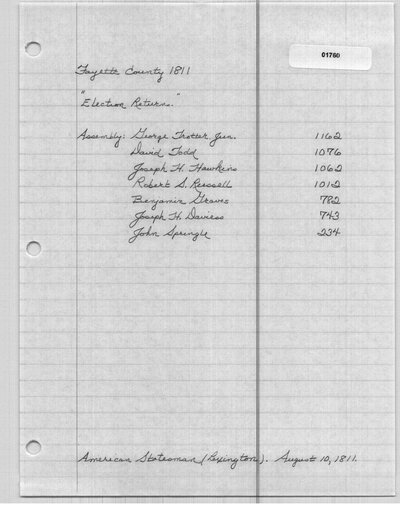 01760
Fayette County 1811
"Election Returns."
Assembly: George Trotter Jun. 1162
David Todd 1076
Joseph H. Hawkins 1062
Robert S. Russell 1012
Benjamin Graves 782
Joseph H. Daviess 743
John Springle 234
American Statesman (Lexington). August 10, 1811.